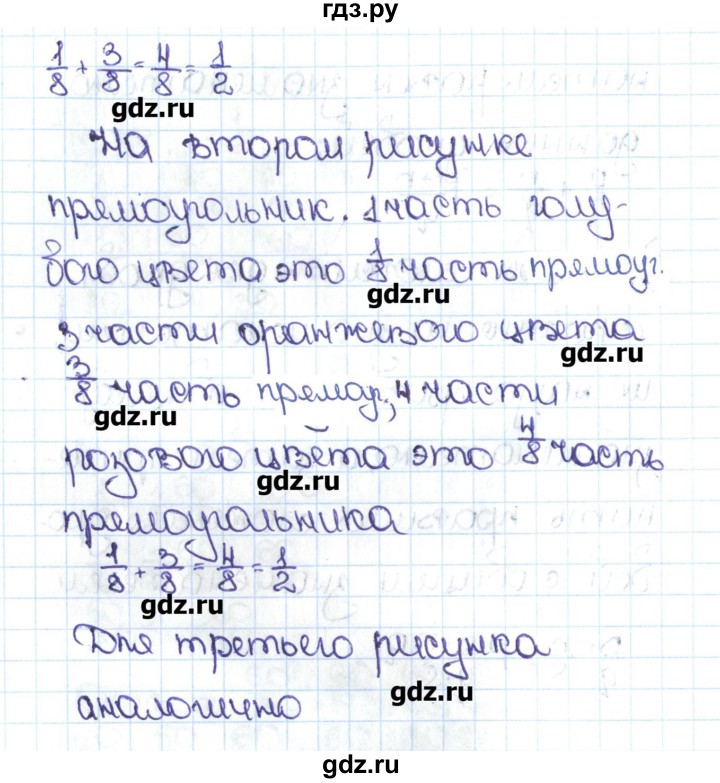 гдз.ру
1/8 + 3/8 = 4/8 = 1/2
gdz.ru
На втором рисунке
прямоугольник. 1 часть голу-
бого цвета это 1/8 часть прямоуг.
gdz.ru
3 части оранжевого цвета
gdz.ru
3/8 часть прямоу., 4 части
gdz.ru
розового цвета это 4/8 часть
gdz.ru
прямоугольника
1/8 + 3/8 = 4/8 = 1/2
gdz.ru
Для третьего рисунка
gdz.ru
аналогично